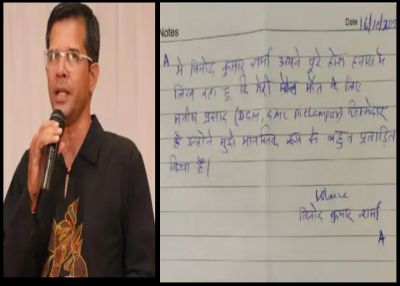 Notes
Date 16/10/20
A मै विनोद कुमार शर्मा अपने पूरे होश हवास मे
लिख रहा हू कि मेरी मौत के लिए
मनीष प्रसाद (DGM, GMC Pithampur) जिम्मेदार
है उन्होने मुझे मानसिक रूप से बहुत प्रताड़ित
किया है।
विनोद कुमार शर्मा
A